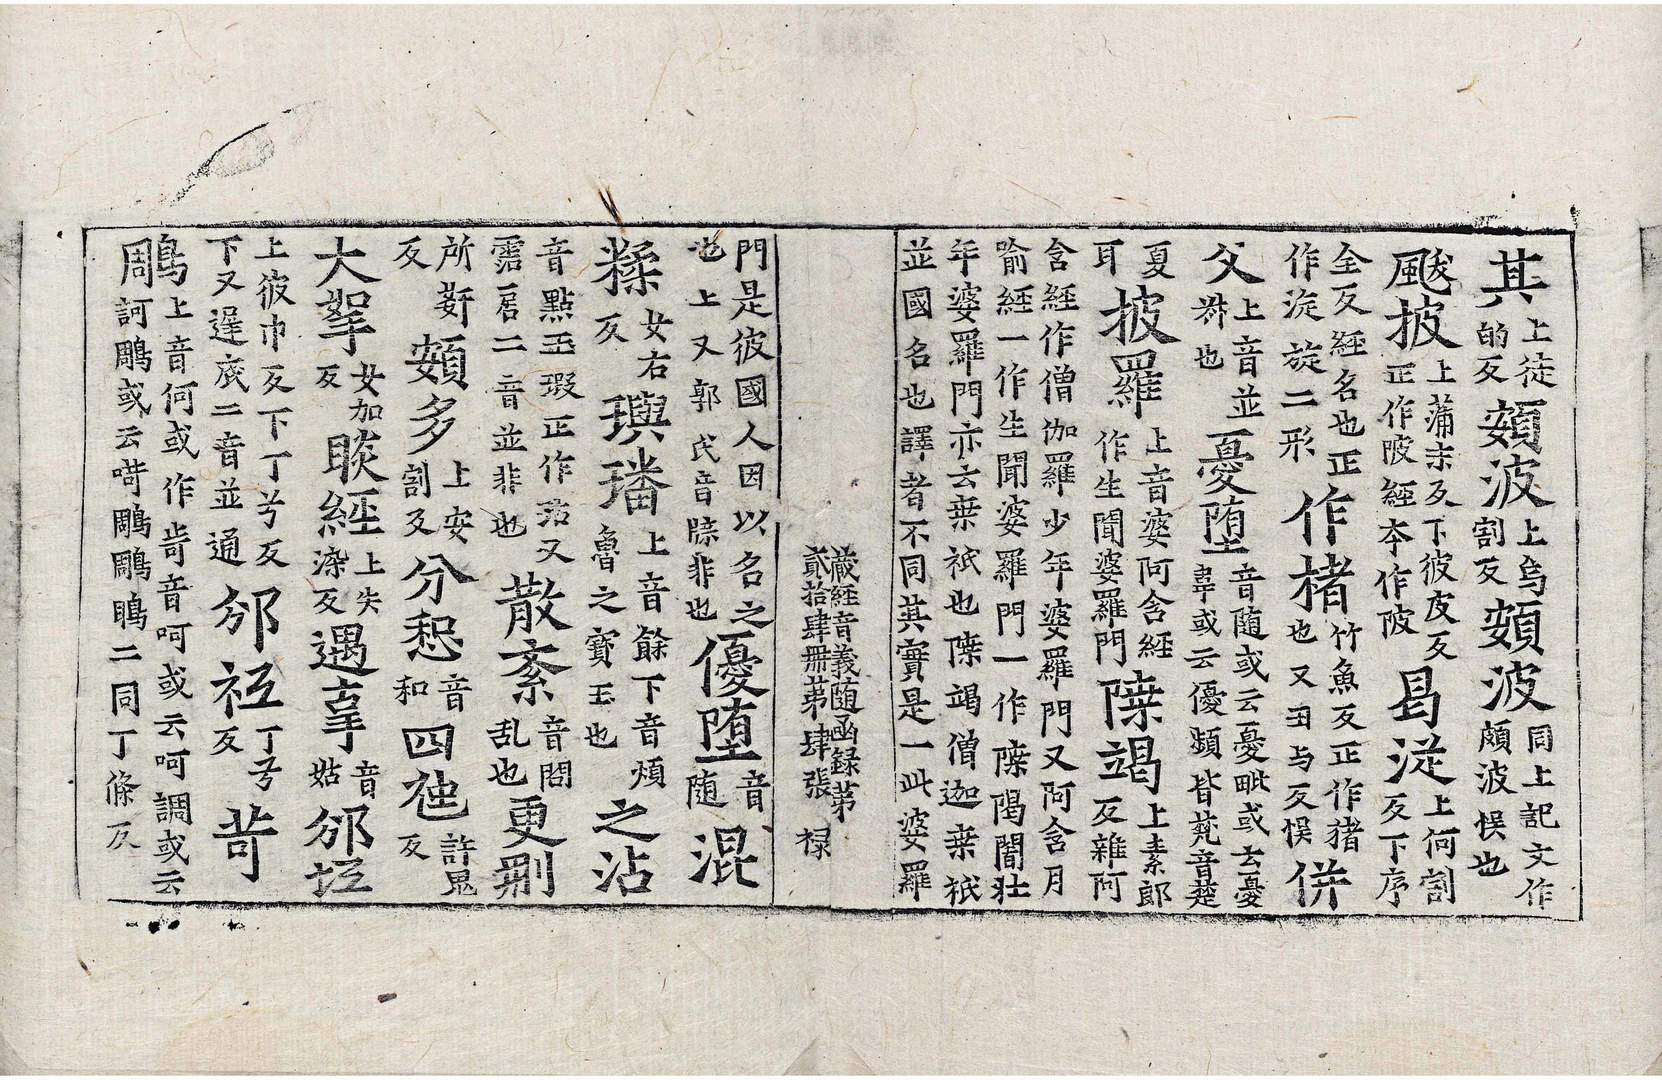 其上徒的反頞波上烏割反頞波同上記文作頗波悮也
颰披上蒲末反下彼皮反正作陂經本作陂曷漇上何割反下序
全反經名也正作漩旋二形作楮竹魚反正作豬也又囙与反悮併
父上音並㳺也憂墮音隨或云憂毗或云憂婁或云優頻皆甍音楚
夏耳披羅上音婆阿含經作生聞婆羅門隟竭上素郎反雜阿
含經作僧伽羅少年婆羅門又阿含月
喻經一作生聞婆羅門一作隟陽闍壯
年婆羅門亦云桒祇也隟竭僧迦桒祇
並國名也譯者不同其實是一此婆羅
藏經音義隨函録第
貳拾肆冊第肆張 禄
門是彼國人因以名之優墮音隨混
也上又郭氏音㯃非也
糅女右反璵璠上音餘下音煩魯之寶玉也之沾
音點玉瑕正作玷又霑㞐二音並非也散紊音問乱也更剛
所姧反頞多上安割反分惒音和四𧙃許鬼反
大挐女加反睒經上失染反遇辜音姑邠坻
上彼巾反下丁兮反下又遟底二音並通邠衹丁兮反苛
鵰上音何或作哬音呵或云呵調或云
周訶鵰或云㗿鵰鵰䳂二同丁條反